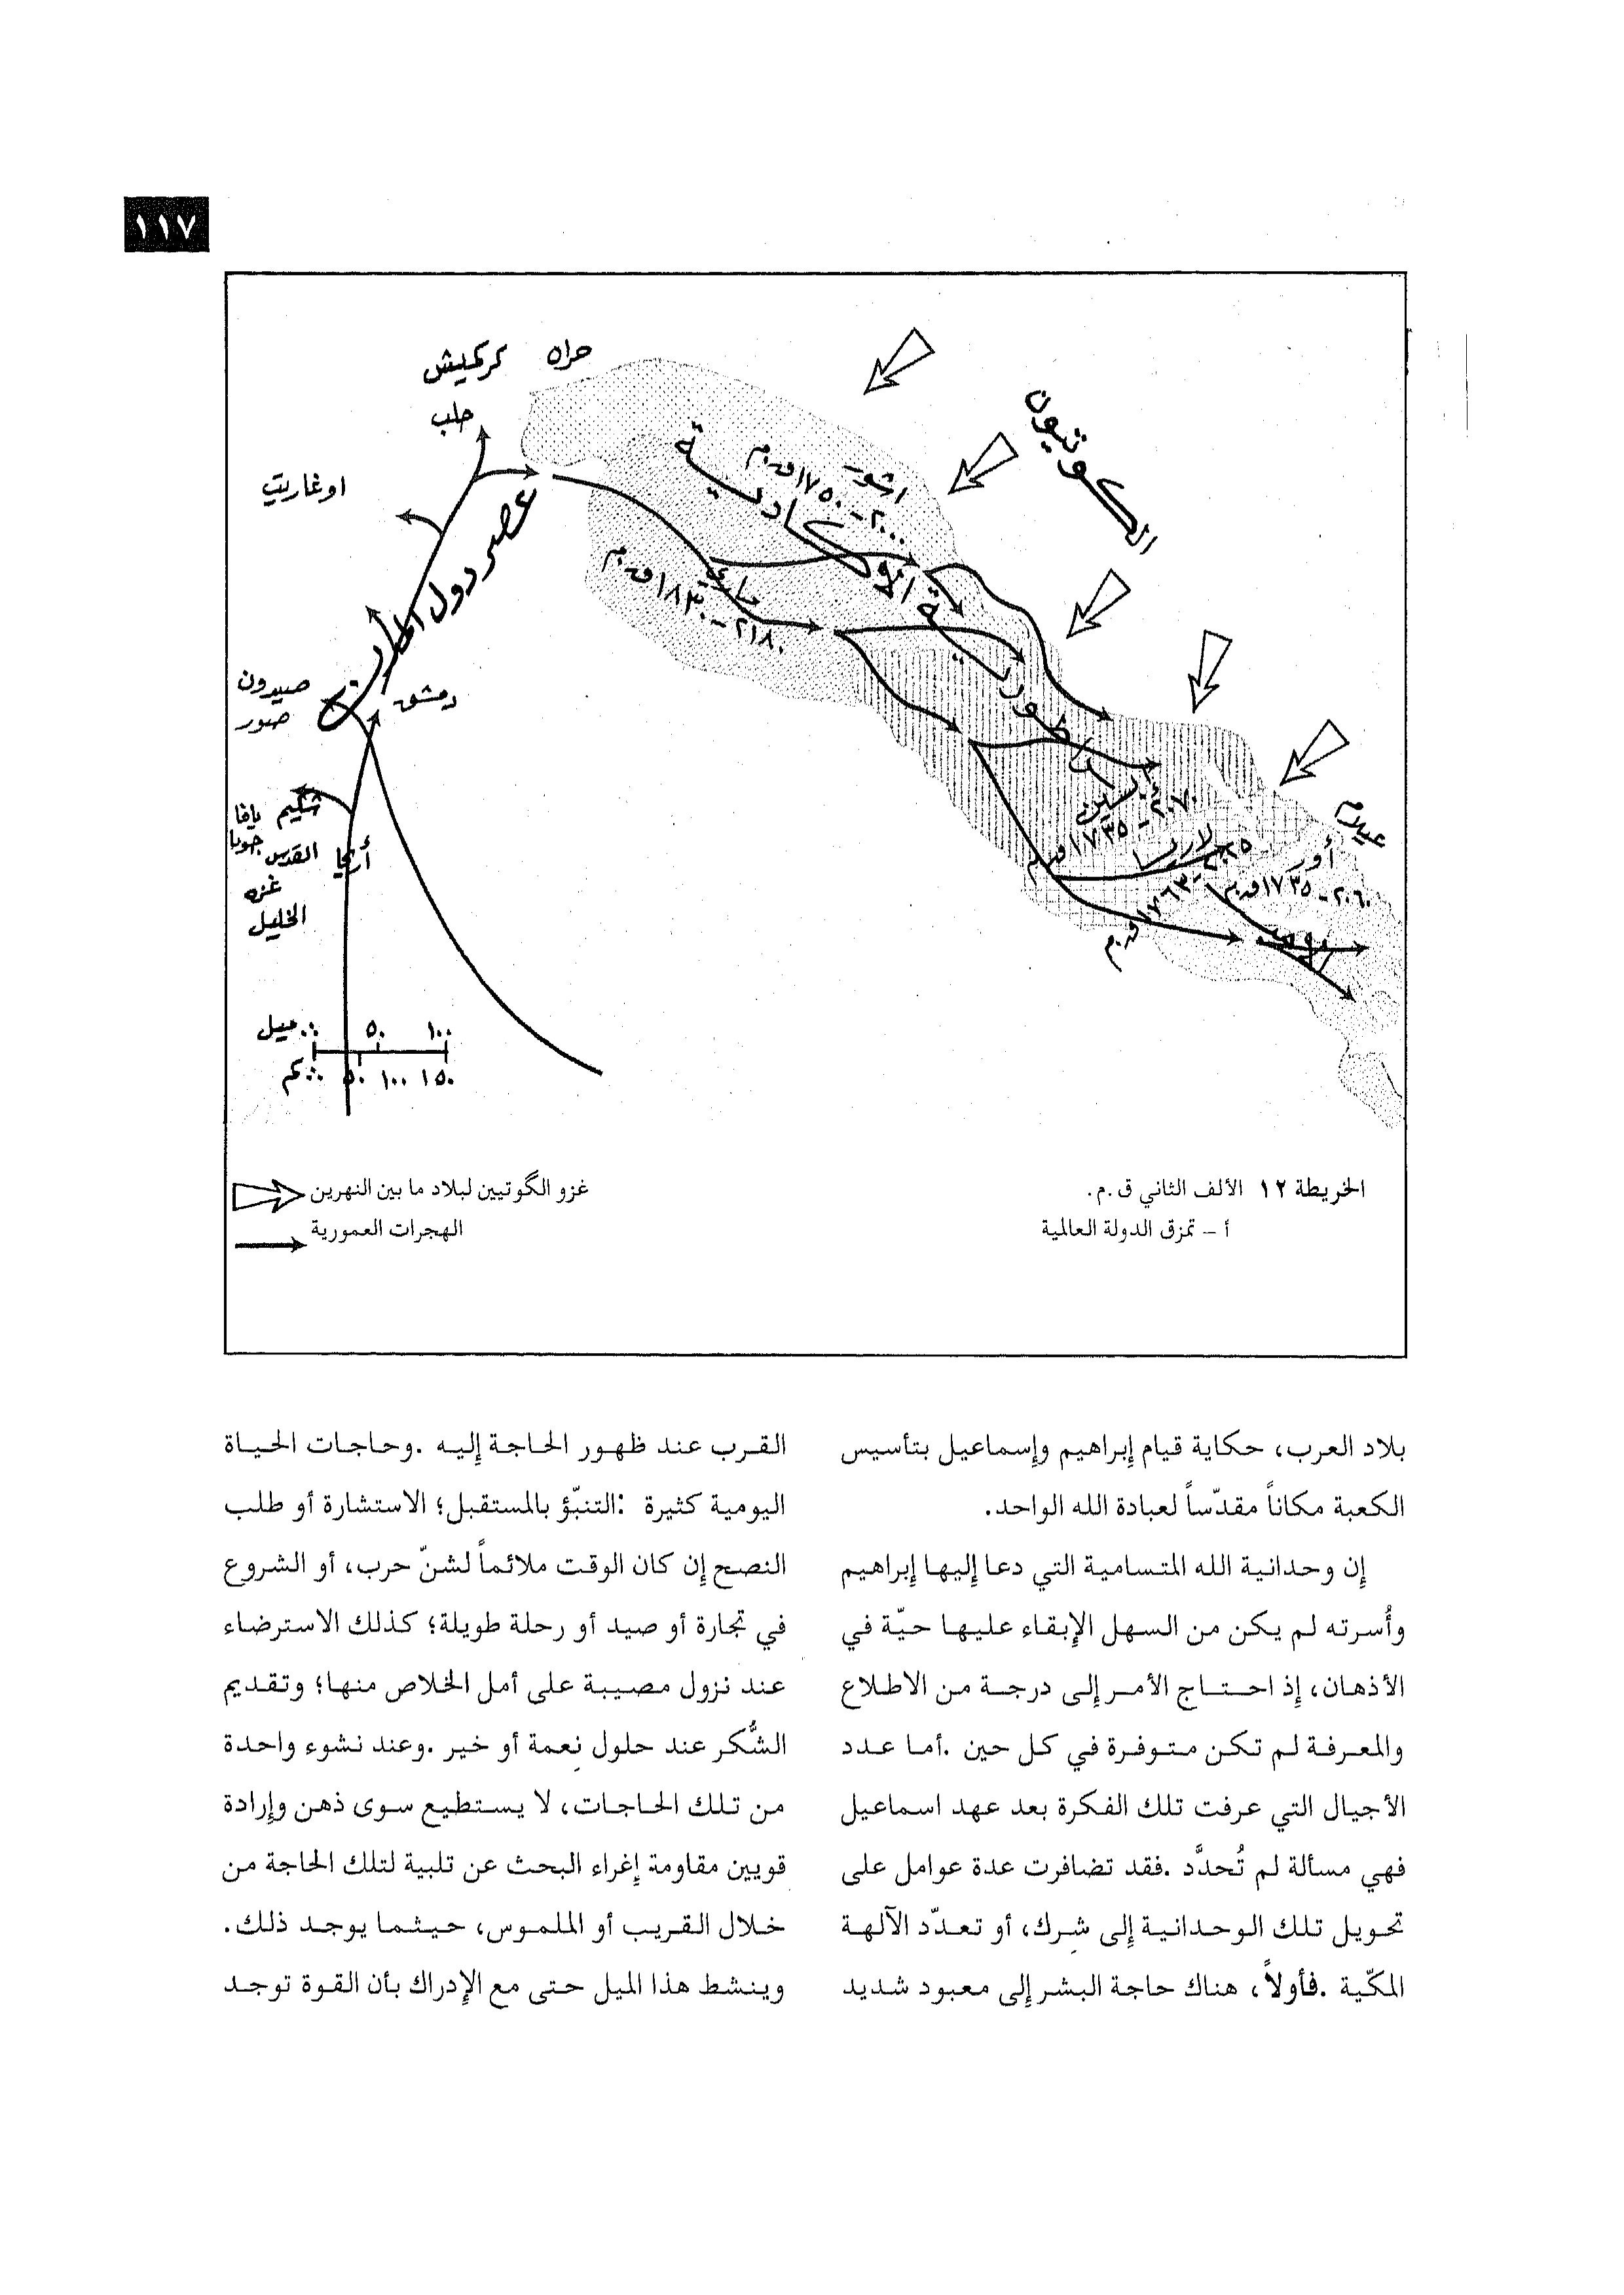 ١١٧
حران
كركميش
حلب
اوغاريت
عصر دول المدن
الكوثيون
آشور
٢٠٠٠-١٧٥٠ق.م
الامبراطورية الأكادية
ماري
٢١٨٠-١٨٣٠ق.م
دمشق
صيدون
صور
شكيم
يافا
القدس
أريحا
غزه
الخليل
عيلام
ايسين
٢٠٧٠-١٧٣٥ق.م
لارسا
٢٠٢٥-١٧٦٣ق.م
أور
٢٠٦٠-١٧٣٥ق.م
ميل ٠ ٥٠ ١٠٠
كم ٠ ٥٠ ١٠٠ ١٥٠
الخريطة ١٢ الألف الثاني ق.م.
أ – تمزق الدولة العالمية
غزو الگوتيين لبلاد ما بين النهرين
الهجرات العمورية
بلاد العرب، حكاية قيام إبراهيم وإسماعيل بتأسيس
الكعبة مكاناً مقدّساً لعبادة الله الواحد.
إن وحدانية الله المتسامية التي دعا إليها إبراهيم
وأُسرته لم يكن من السهل الإبقاء عليها حيّة في
الأذهان، إذ احتاج الأمر إلى درجة من الاطلاع
والمعرفة لم تكن متوفرة في كل حين .أما عدد
الأجيال التي عرفت تلك الفكرة بعد عهد اسماعيل
فهي مسألة لم تُحدَّد .فقد تضافرت عدة عوامل على
تحويل تلك الوحدانية إلى شِرك، أو تعدّد الآلهة
المكّية .فأولاً، هناك حاجة البشر إلى معبود شديد
القرب عند ظهور الحاجة إليه .وحاجات الحياة
اليومية كثيرة :التنبّؤ بالمستقبل؛ الاستشارة أو طلب
النصح إن كان الوقت ملائماً لشنّ حرب، أو الشروع
في تجارة أو صيد أو رحلة طويلة؛ كذلك الاسترضاء
عند نزول مصيبة على أمل الخلاص منها؛ وتقديم
الشُّكر عند حلول نِعمة أو خير .وعند نشوء واحدة
من تلك الحاجات، لا يستطيع سوى ذهن وإرادة
قويين مقاومة إغراء البحث عن تلبية لتلك الحاجة من
خلال القريب أو الملموس، حيثما يوجد ذلك.
وينشط هذا الميل حتى مع الإدراك بأن القوة توجد